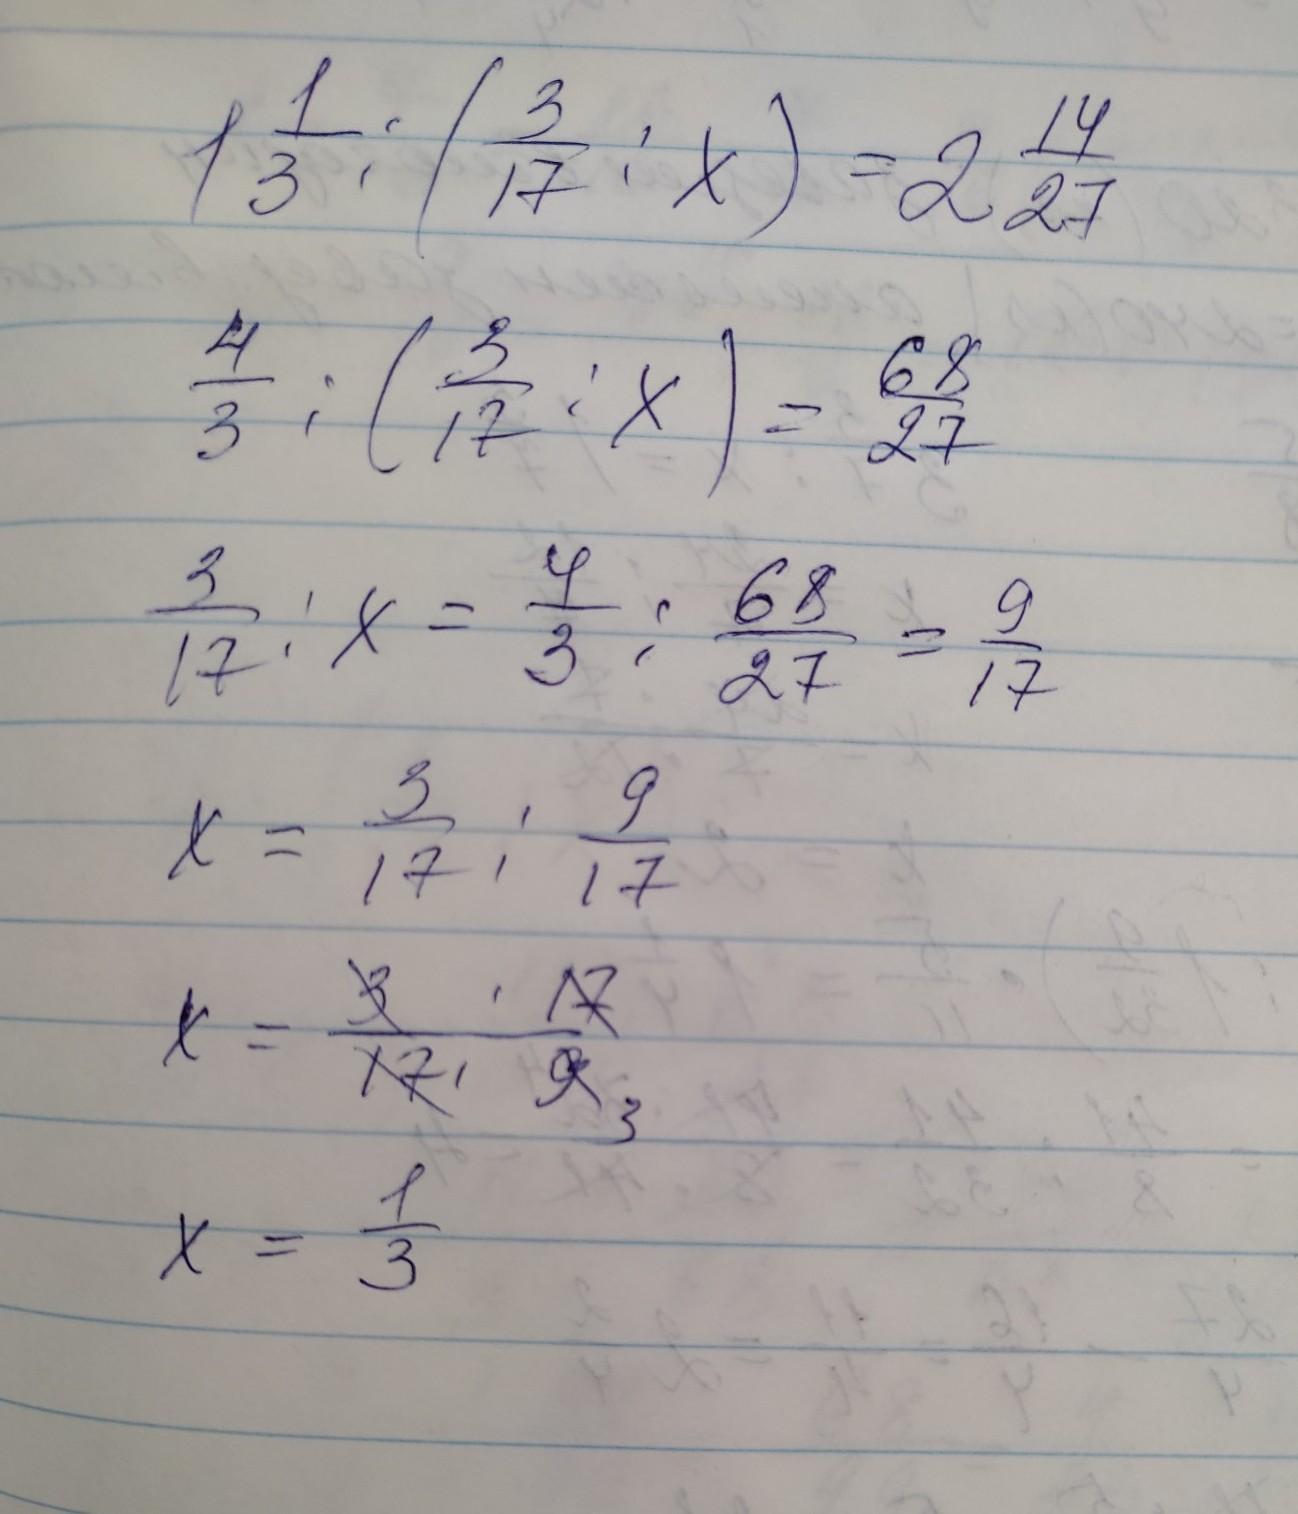 1 1/3 : (3/17 : x) = 2 14/27
4/3 : (3/17 : x) = 68/27
3/17 : x = 4/3 : 68/27 = 9/17
x = 3/17 : 9/17
x = 3 · 17 / 17 · 9 3
x = 1/3